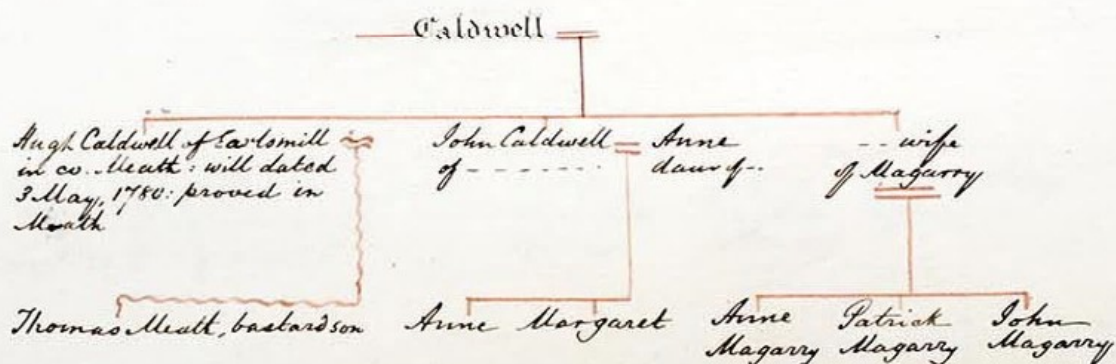 Caldwell
Hugh Caldwell of Earlsmill
in co. Meath : will dated
3 May, 1780: proved in
Meath
John Caldwell
of - - - - - - -
Anne
daur of - -
- - wife
of Magarry
Thomas Meath, bastard son
Anne Margaret
Anne
Magarry
Patrick
Magarry
John
Magarry